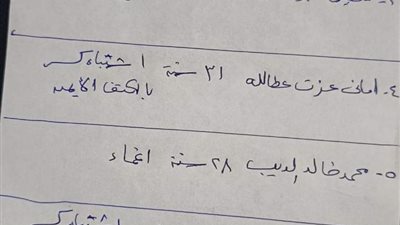 ٤- امانى عزت عطالله ٣١ سنة اشتباه كسر
بالكتف الأيمن
٥- محمد خالد الديب ٢٨ سنة اغماء